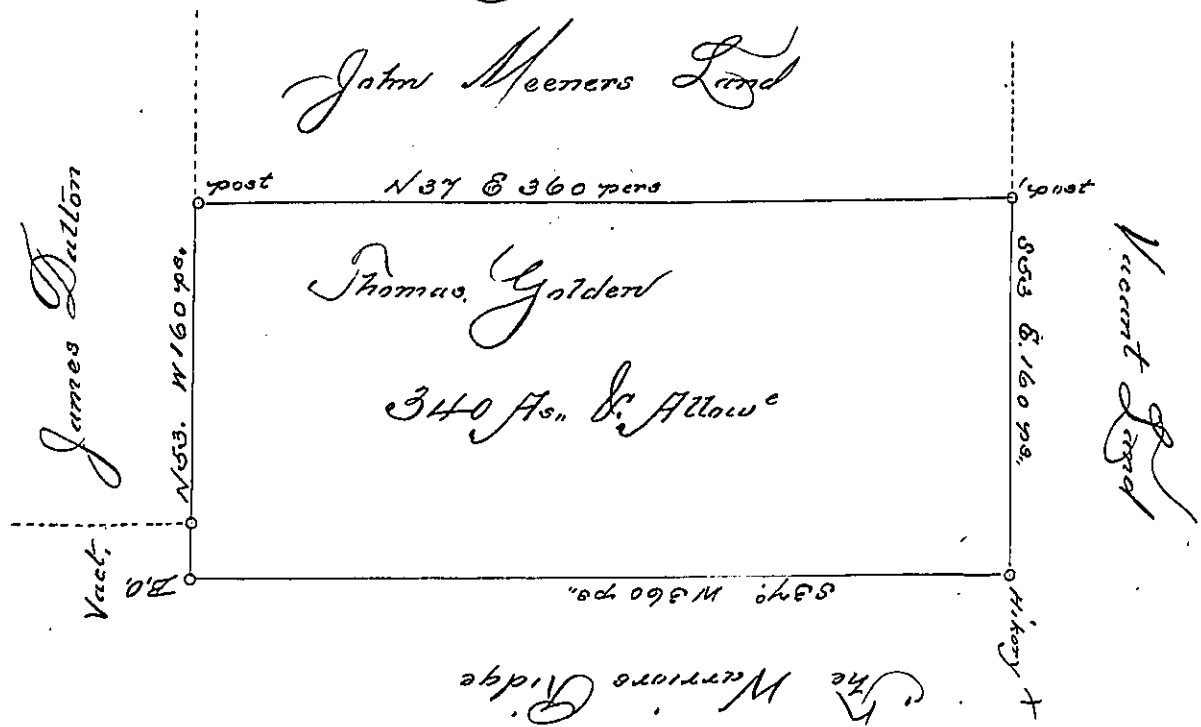 John Meeners Land
post
N37 E 360 pers
post
James Dutton
N53. W 160 ps.
Thomas Golden
340 As,, & Allowᶜ
S53 E. 160 ps.
Vacant Land
Vact.
B.O.
S37°. W 360 ps.,
Hikory +
The Warriors Ridge